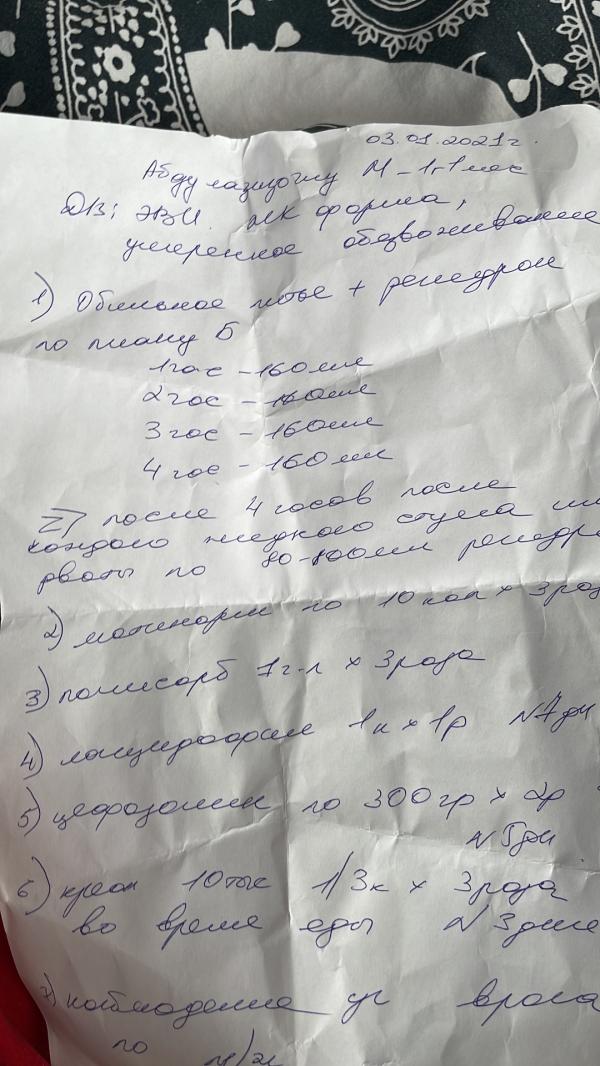 03.01.2021г.
М - 1г1мес
ДВ: ЭВИ. ЖК форма,
умеренное обезвоживание
1) Обильное питье + регидрон
по плану Б
1час - 160мл
2час - 160мл
3час - 160мл
4час - 160мл
после 4 часов после
каждого жидкого стула
рвоты по 80-100мл
2) по 10кап х 3раза
3) полисорб 1ч.л х 3раза
4) лацидоформ 1к х 1р N7дн
5) цефазолин по 300гр х 2р
N5дн
6) креон 10тыс 1/3к х 3раза
во время еды N3дня
7) наблюдение уч врача
по м/ж